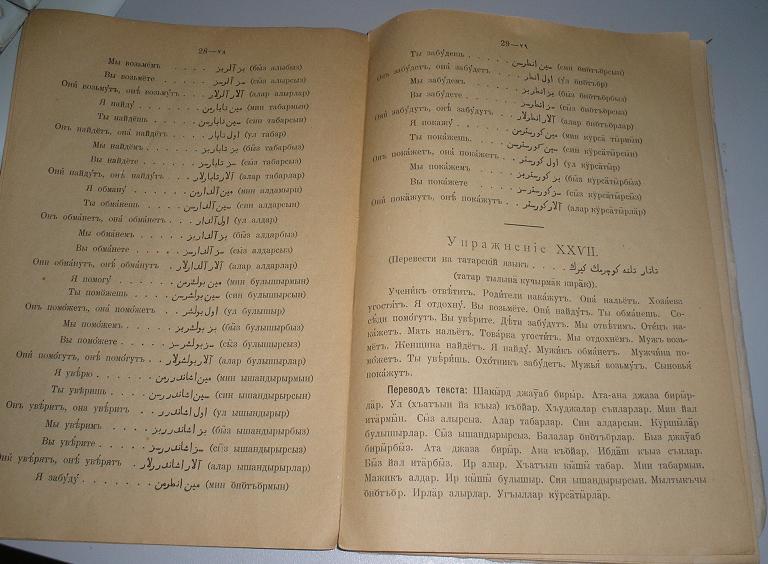 28—٢٨
Мы возьмёмъ بز آلربز (быз алыбыз)
Вы возьмёте سز آلرسز (сыз алырсыз)
Они́ возьму́тъ, онѣ́ возьму́тъ آلار آلورلار (алар алырлар)
Я найду́ مين تابارمن (мин табармын)
Ты найдёшь سين تابارسن (син табарсын)
Онъ найдётъ, она́ найдётъ اول تابار (ул табар)
Мы найдёмъ بز تاباربز (быз табарбыз)
Вы найдёте سز تابارسز (сыз табарсыз)
Они́ найду́тъ, онѣ́ найду́тъ آلار تابارلار (алар табарлар)
Я обману́ مين آلدارمن (мин алдамыри
Ты обма́нешь سين آلدارسن (син алдарсын)
Онъ обма́нетъ, она́ обма́нетъ اول آلدار (ул алдар)
Мы обма́немъ بز آلداربز (быз алдарбыз)
Вы обма́нете سز آلدارسز (сыз алдарсыз)
Они обма́нутъ, онѣ́ обма́нутъ آلار آلدارلار (алар алдарлар)
Я помогу́ مين بولشرمن (мин булышырмын)
Ты помо́жешь سين بولشرسن (син булышырсын)
Онъ помо́жетъ, она́ помо́жетъ اول بولشر (ул булышыр)
Мы помо́жемъ بز بولشربز (быз булышырбыз)
Вы помо́жете سز بولشرسز (сыз булышырсыз)
Они́ помо́гутъ, онѣ́ помо́гутъ آلار بولشرلار (алар булышырлар)
Я увѣ́рю مين اشاندررمن (мин ышандырырмын)
Ты увѣ́ришь سين اشاندررسن (син ышандырырсын)
Онъ увѣ́ритъ, она увѣ́ритъ اول اشاندرر (ул ышандырыр)
Мы увѣ́римъ بز اشاندرربز (быз ышандырырбыз)
Вы увѣ́рите سز اشاندررسز (сыз ышандырырсыз)
Они́ увѣ́рятъ, онѣ́ увѣ́рятъ آلار اشاندررلار (алар ышандырырлар)
Я забу́ду́ مين انطرمن (мин онотъӧрмын)
29—٢٩
Ты забу́дешь سين انطرسن (син онотъӧрсын)
Онъ забу́детъ, она́ забу́детъ اول انطر (ул онотъӧр)
Мы забу́демъ بز انطربز (быз онотъӧрбыз)
Вы забу́дете سز انطرسز (сыз онотъӧрсыз)
Они́ забу́дутъ, онѣ́ забу́дутъ آلار انطرلار (алар онотъӧрлар)
Я покажу́ مين كورسترمن (мин курса́ тырмын)
Ты пока́жешь سين كورسترسن (син курсатырсын)
Онъ пока́жетъ, она́ пока́жетъ اول كورستر (ул ку́рсатыр)
Мы пока́жемъ بز كورستربز (быз курсатырбыз)
Вы пока́жете سز كورسترسز (сыз курсатырсыз)
Они́ пока́жутъ, онѣ́ пока́жутъ آلار كورسترلر (алар курсатырлар)
Упражненіе XXVII.
(Перевести на татарскій языкъ تاتار تلنه كوچرمك كيرك
(татар тылына кучырмак кирак)).
Учени́къ отвѣ́титъ. Роди́тели нака́жутъ. Она́ нальётъ. Хозя́ева
угостя́тъ. Я отдохну́. Вы возьмёте. Онѣ́ найду́тъ. Ты обма́нешь. Со-
сѣ́ди помо́гутъ. Вы увѣ́рите. Дѣ́ти забу́дутъ. Мы отвѣ́тимъ. Оте́цъ на-
ка́жетъ. Мать нальётъ. Това́рка угости́тъ. Мы отдохнёмъ. Мужъ возь-
мётъ. Же́нщина найдётъ. Я найду́. Мужи́къ обма́нетъ. Мужчи́на по-
мо́жетъ. Ты увѣ́ришь. Охо́тникъ забу́детъ. Мужья́ возьму́тъ. Сыновья́
пока́жутъ.
Переводъ текста: Шакырд джаўаб бирыр. Ата-ана джаза биры́р-
ла́р. Ул (хъатъын йа къыз) къӧйар. Хъуджалар съиларлар. Мин йал
ита́рмын. Сыз алырсыз. Алар табарлар. Син алдарсын. Куршыла́р
булышырлар. Сыз ышандырырсыз. Балалар онотъӧрлар. Быз джаўаб
бирырбыз. Ата джаза бирыр. Ана къӧйар. Ибдаш къыз съилар.
Быз йал ита́рбыз. Ир алыр. Хъатъын кышы табар. Мин табармын.
Мажикъ алдар. Ир кышы булышыр. Син ышандырырсын. Мылтыкъчы
онотъӧр. Ирлар алырлар. Угъыллар курсатырлар.